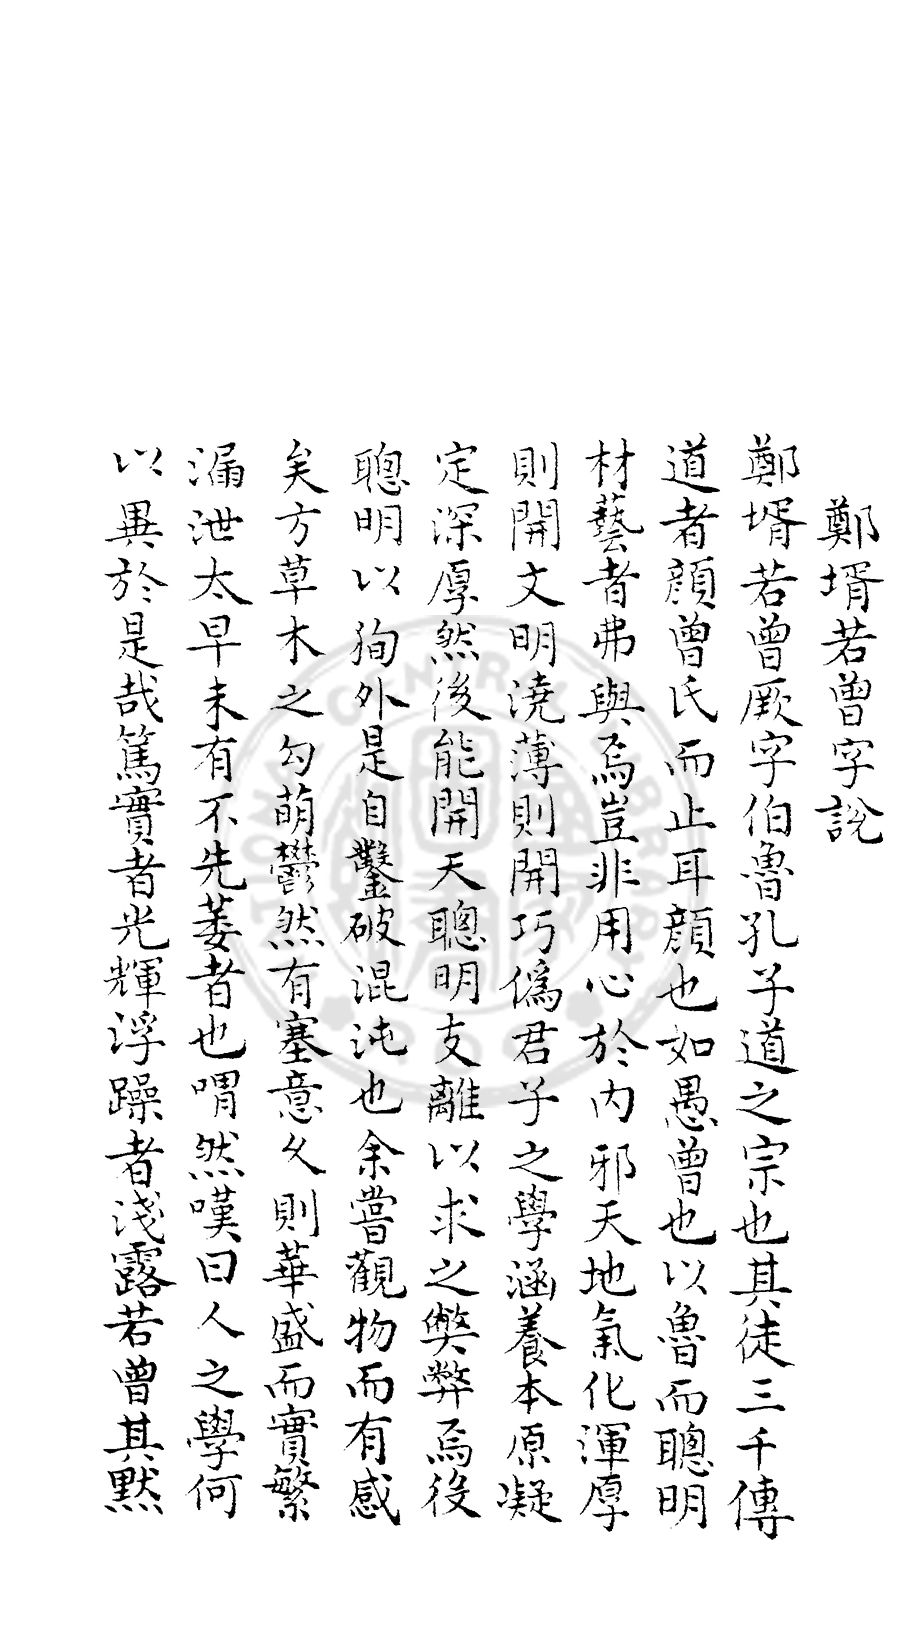 鄭壻若曾字說
鄭壻若曾厥字伯魯孔子道之宗也其徒三千傳
道者顔曾氏而止耳顔也如愚曾也以魯而聰明
材藝者弗與焉豈非用心於内邪天地氣化渾厚
則開文明澆薄則開巧僞君子之學涵養本原凝
定深厚然後能開天聰明支離以求之弊弊焉役
聰明以狥外是自鑿破混沌也余嘗觀物而有感
矣方草木之勾萌鬱然有塞意久則華盛而實繁
漏泄太早未有不先萎者也喟然嘆曰人之學何
以異於是哉篤實者光輝浮躁者淺露若曾其默
CENTRAL LIBRARY